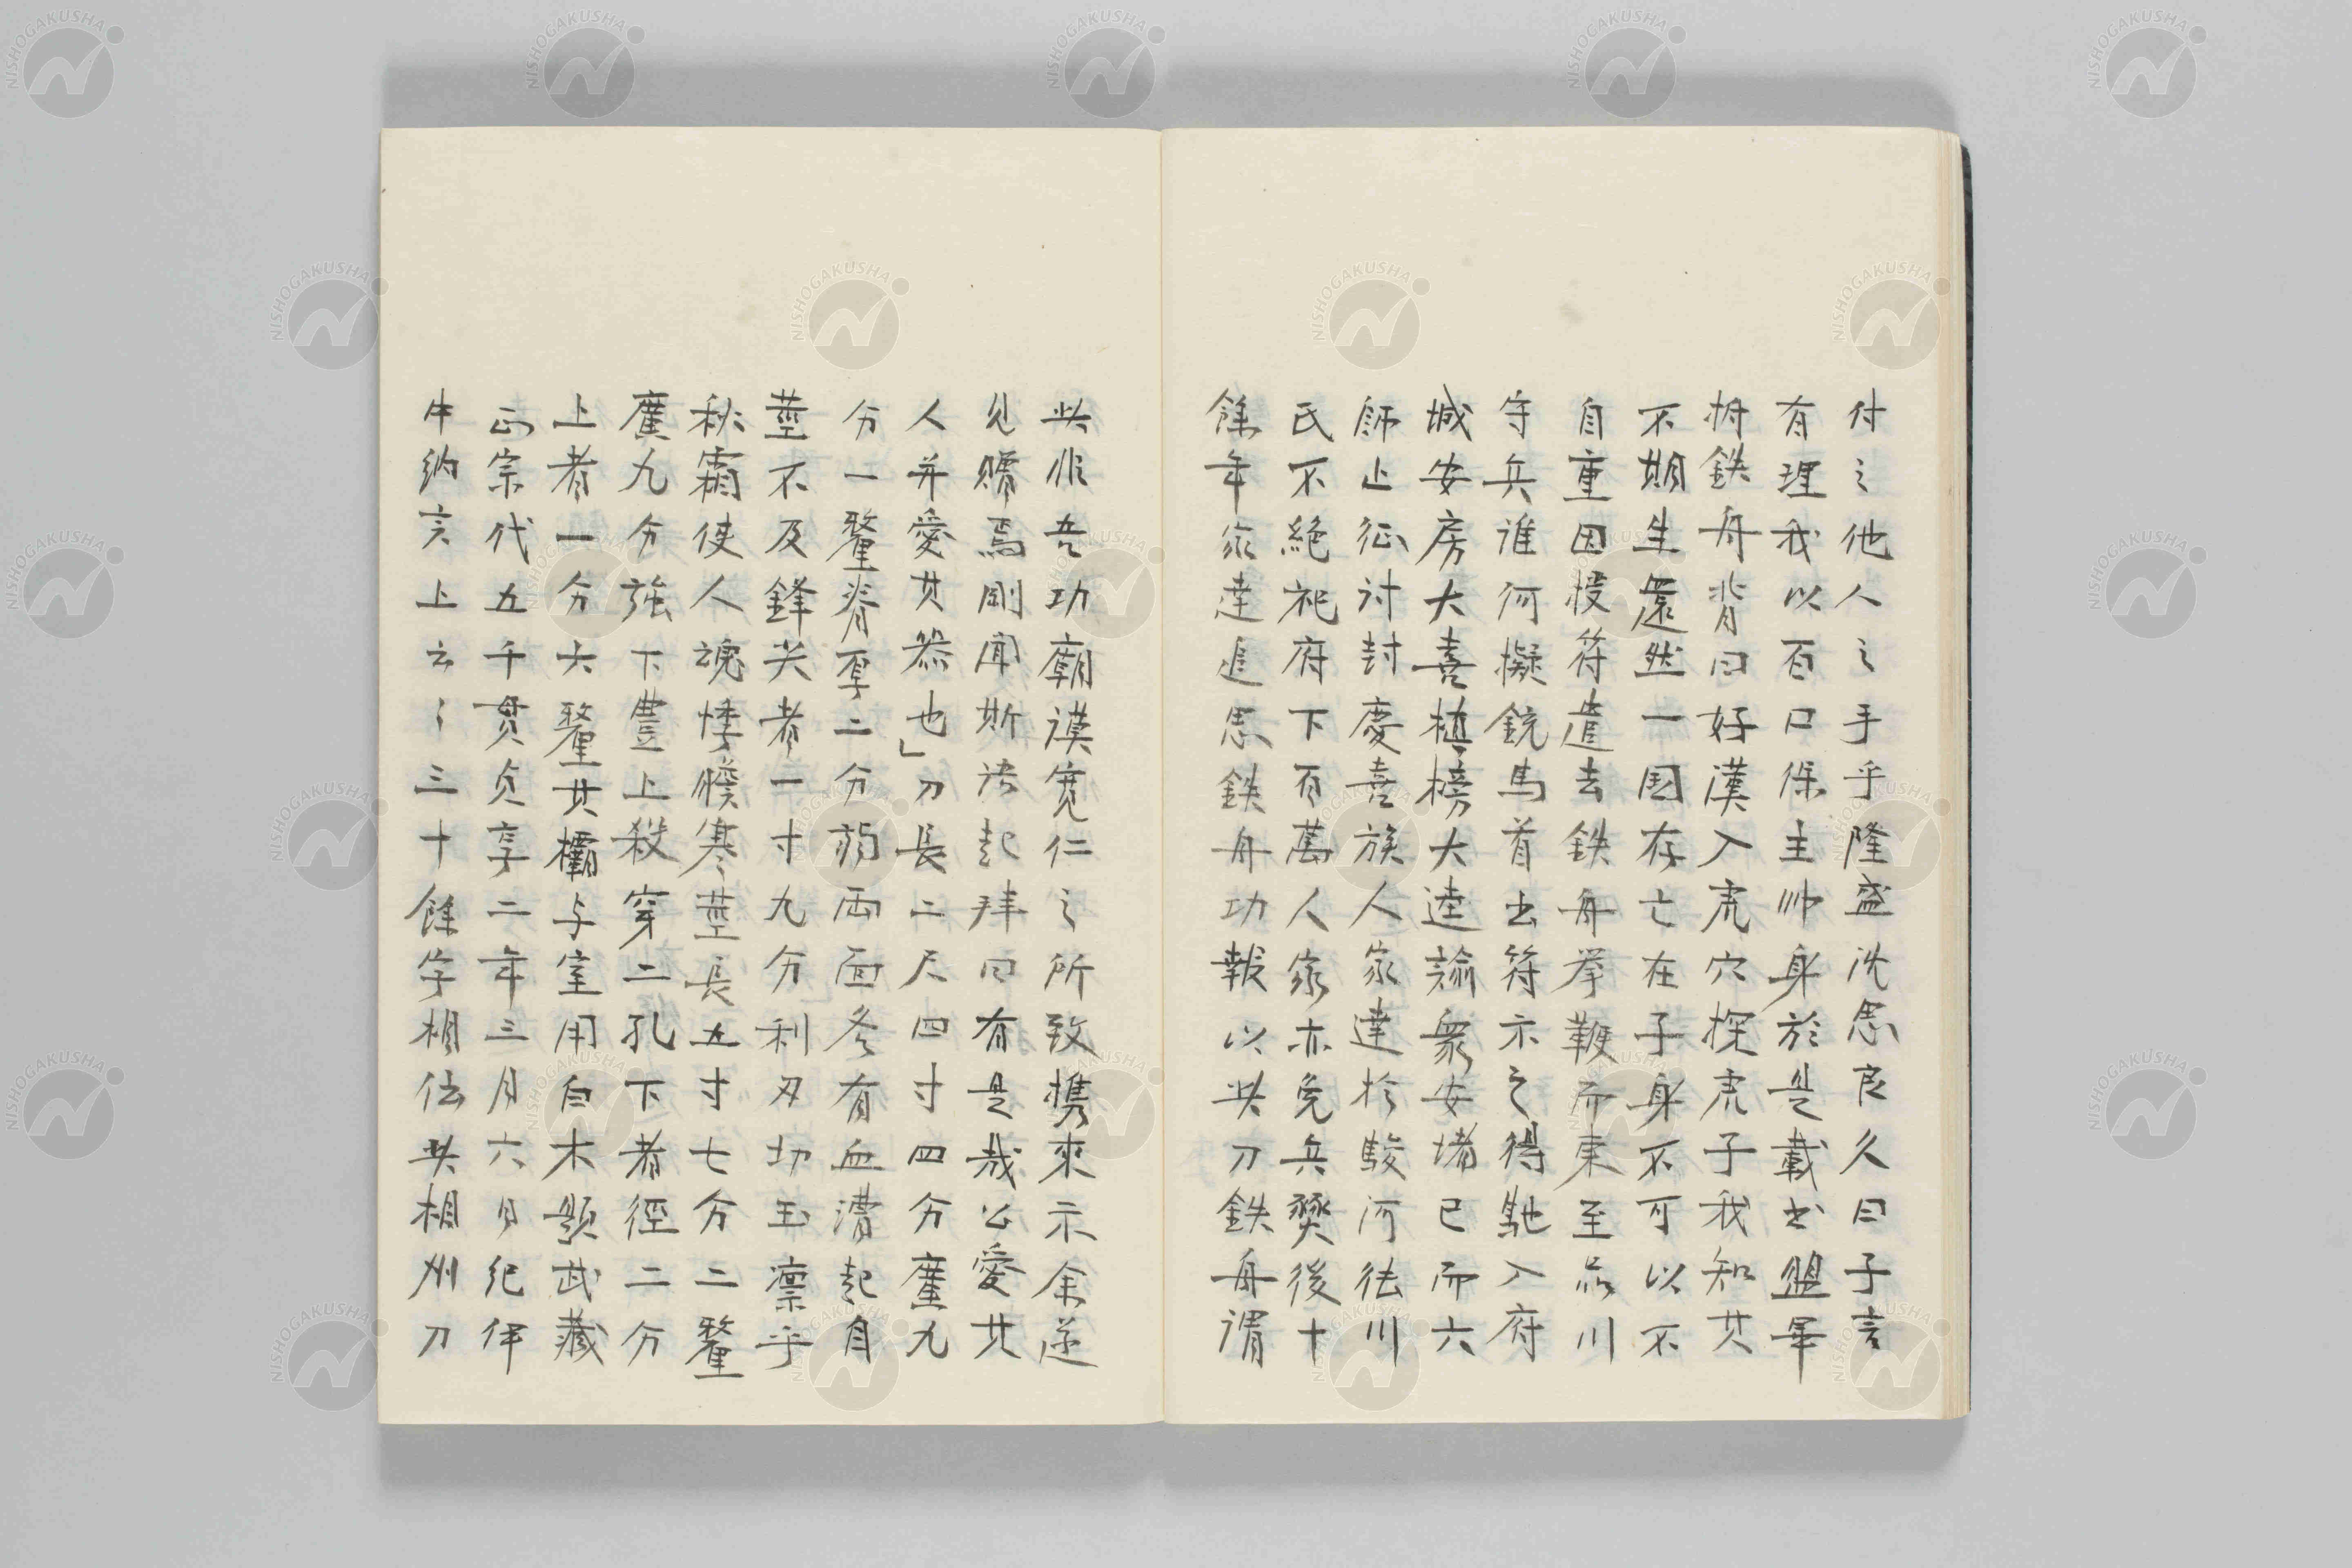 付之他人之手乎隆盛沈思良久曰子言
有理我以百口保主帅身於是載书盟畢
拊鉄舟背曰好漢入虎穴探虎子我知其
不期生還然一国存亡在子身不可以不
自重因授符遣去鉄舟挙鞭而東至品川
守兵誰何擬銃馬首出符示之得馳入府
城安房大喜植榜大逵諭衆安堵已而六
師止征討封慶喜族人家達於駿河徳川
氏不絶祀府下百萬人家亦免兵燹後十
餘年家達追思鉄舟功報以此刀鉄舟謂
此非吾功廟謨寛仁之所致携來示余遂
見贈焉剛聞斯語起拝曰有是哉公愛其
人并愛其器也」刀長二尺四寸四分廣九
分一釐脊厚二分弱両面各有血漕起自
莖不及鋒尖者一寸九分利刃切玉凛乎
秋霜使人魂悸膽寒莖長五寸七分二釐
廣九分強下豊上殺穿二孔下者徑二分
上者一分六釐其欛与室用白木題武藏
正宗代五千貫貞享二年三月六日紀伊
中納言上云々三十餘字相伝此相州刀